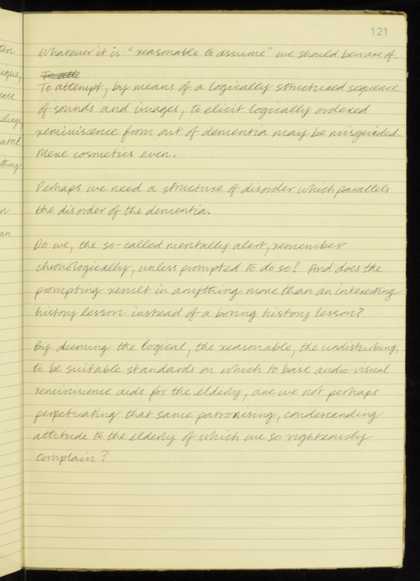 121
Whatever it is "reasonable to assume" we should beware of.
To attempt, by means of a logically structured sequence
of sounds and images, to elicit logically ordered
reminisence from out of dementia may be misguided.
Mere cosmetics even.
Perhaps we need a structure of disorder which parallels
the disorder of the dementia.
Do we, the so-called mentally alert, remember
chronologically, unless prompted to do so? And does the
prompting result in anything more than an interesting
history lesson instead of a boring history lesson?
By deeming the logical, the reasonable, the undisturbing,
to be suitable standards on which to base audio visual
reminisence aids for the elderly, are we not perhaps
perpetuating that same patronising, condescending
attitude to the elderly of which we so righteously
complain?